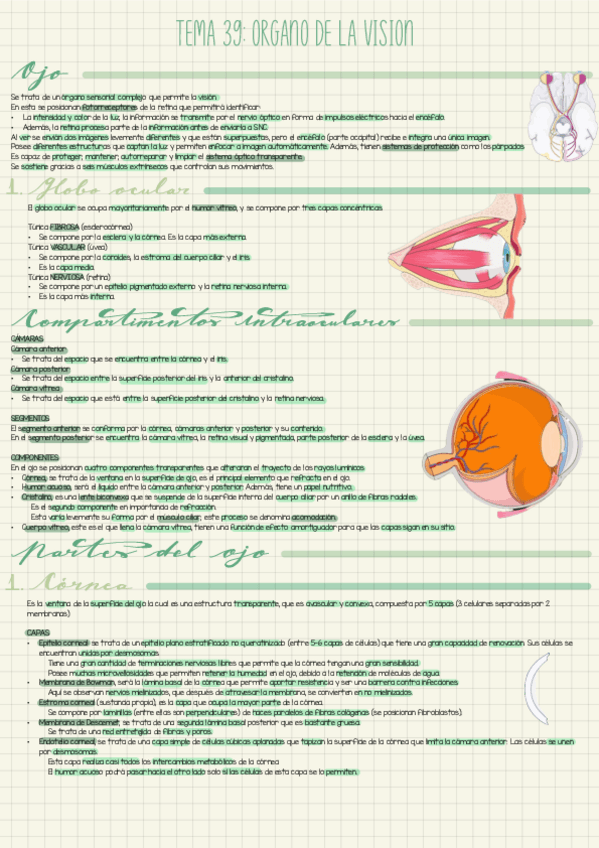 TEMA 39: ORGANO DE LA VISION
Ojo
Se trata de un órgano sensorial complejo que permite la visión.
En esta se posicionan fotorreceptores de la retina que permitirá identificar:
• La intensidad y color de la luz, la información se transmite por el nervio óptico en forma de impulsos eléctricos hacia el encéfalo.
• Además, la retina procesa parte de la información antes de enviarla a SNC
Al ver se envían dos imágenes levemente diferentes y que están superpuestas, pero el encéfalo (parte occipital) recibe e integra una única imagen.
Posee diferentes estructuras que captan la luz y permiten enfocar a imagen automáticamente. Además, tienen sistemas de protección como los párpados.
Es capaz de proteger, mantener, autorreparar y limpiar el sistema óptico transparente.
Se sostiene gracias a seis músculos extrínsecos que controlan sus movimientos.
1. Globo ocular
El globo ocular se ocupa mayoritariamente por el humor vítreo, y se compone por tres capas concéntricas.
Túnica FIBROSA (esclerocórnea)
• Se compone por la esclera y la córnea. Es la capa más externa.
Túnica VASCULAR (úvea)
• Se compone por la coroides, la estroma del cuerpo ciliar y el iris.
• Es la capa media.
Túnica NERVIOSA (retina)
• Se compone por un epitelio pigmentado externo y la retina nerviosa interna.
• Es la capa más interna.
Compartimentos intraoculares
CÁMARAS
Cámara anterior
• Se trata del espacio que se encuentra entre la córnea y el iris.
Cámara posterior
• Se trata del espacio entre la superficie posterior del iris y la anterior del cristalino.
Cámara vítrea
• Se trata del espacio que está entre la superficie posterior del cristalino y la retina nerviosa.
SEGMENTOS
El segmento anterior se conforma por la córnea, cámaras anterior y posterior y su contenido.
En el segmento posterior se encuentra la cámara vítrea, la retina visual y pigmentada, parte posterior de la esclera y la úvea.
COMPONENTES
En el ojo se posicionan cuatro componentes transparentes que alteraran el trayecto de los rayos lumínicos.
• Córnea, se trata de la ventana en la superficie de ojo, es el principal elemento que refracta en el ojo.
• Humor acuoso, será el líquido entre la cámara anterior y posterior. Además, tiene un papel nutritivo.
• Cristalino, es una lente biconvexa que se suspende de la superficie interna del cuerpo ciliar por un anillo de fibras radiales.
Es el segundo componente en importancia de refracción.
Esta varía levemente su forma por el músculo ciliar, este proceso se denomina acomodación.
• Cuerpo vítreo, este es el que llena la cámara vítrea, tienen una función de efecto amortiguador para que las capas sigan en su sitio.
Partes del ojo
1. Córnea
Es la ventana de la superficie del ojo la cual es una estructura transparente, que es avascular y convexa, compuesta por 5 capas (3 celulares separadas por 2
membranas.)
CAPAS
• Epitelio corneal: se trata de un epitelio plano estratificado no queratinizado (entre 5-6 capas de células) que tiene una gran capacidad de renovación. Sus células se
encuentran unidas por desmosomas.
Tiene una gran cantidad de terminaciones nerviosas libres que permite que la córnea tengan una gran sensibilidad.
Posee muchas microvellosidades que permiten retener la humedad en el ojo, debido a la retención de moléculas de agua.
• Membrana de Bowman, será la lámina basal de la córnea que permite aportar resistencia y ser una barrera contra infecciones.
Aquí se observan nervios mielinizados, que después de atravesar la membrana, se convierten en no mielinizados.
• Estroma corneal (sustancia propia), es la capa que ocupa la mayor parte de la córnea.
Se compone por laminillas (entre ellas son perpendiculares) de haces paralelos de fibras colágenas (se posicionan fibroblastos).
• Membrana de Descemet, se trata de una segunda lámina basal posterior que es bastante gruesa.
Se trata de una red entretejida de fibras y poros.
• Endotelio corneal, se trata de una capa simple de células cúbicas aplanadas que tapizan la superficie de la córnea que limita la cámara anterior. Las células se unen
por desmosomas.
Esta capa realiza casi todos los intercambios metabólicos de la córnea.
El humor acuoso podrá pasar hacia el otro lado solo si las células de esta capa se lo permiten.